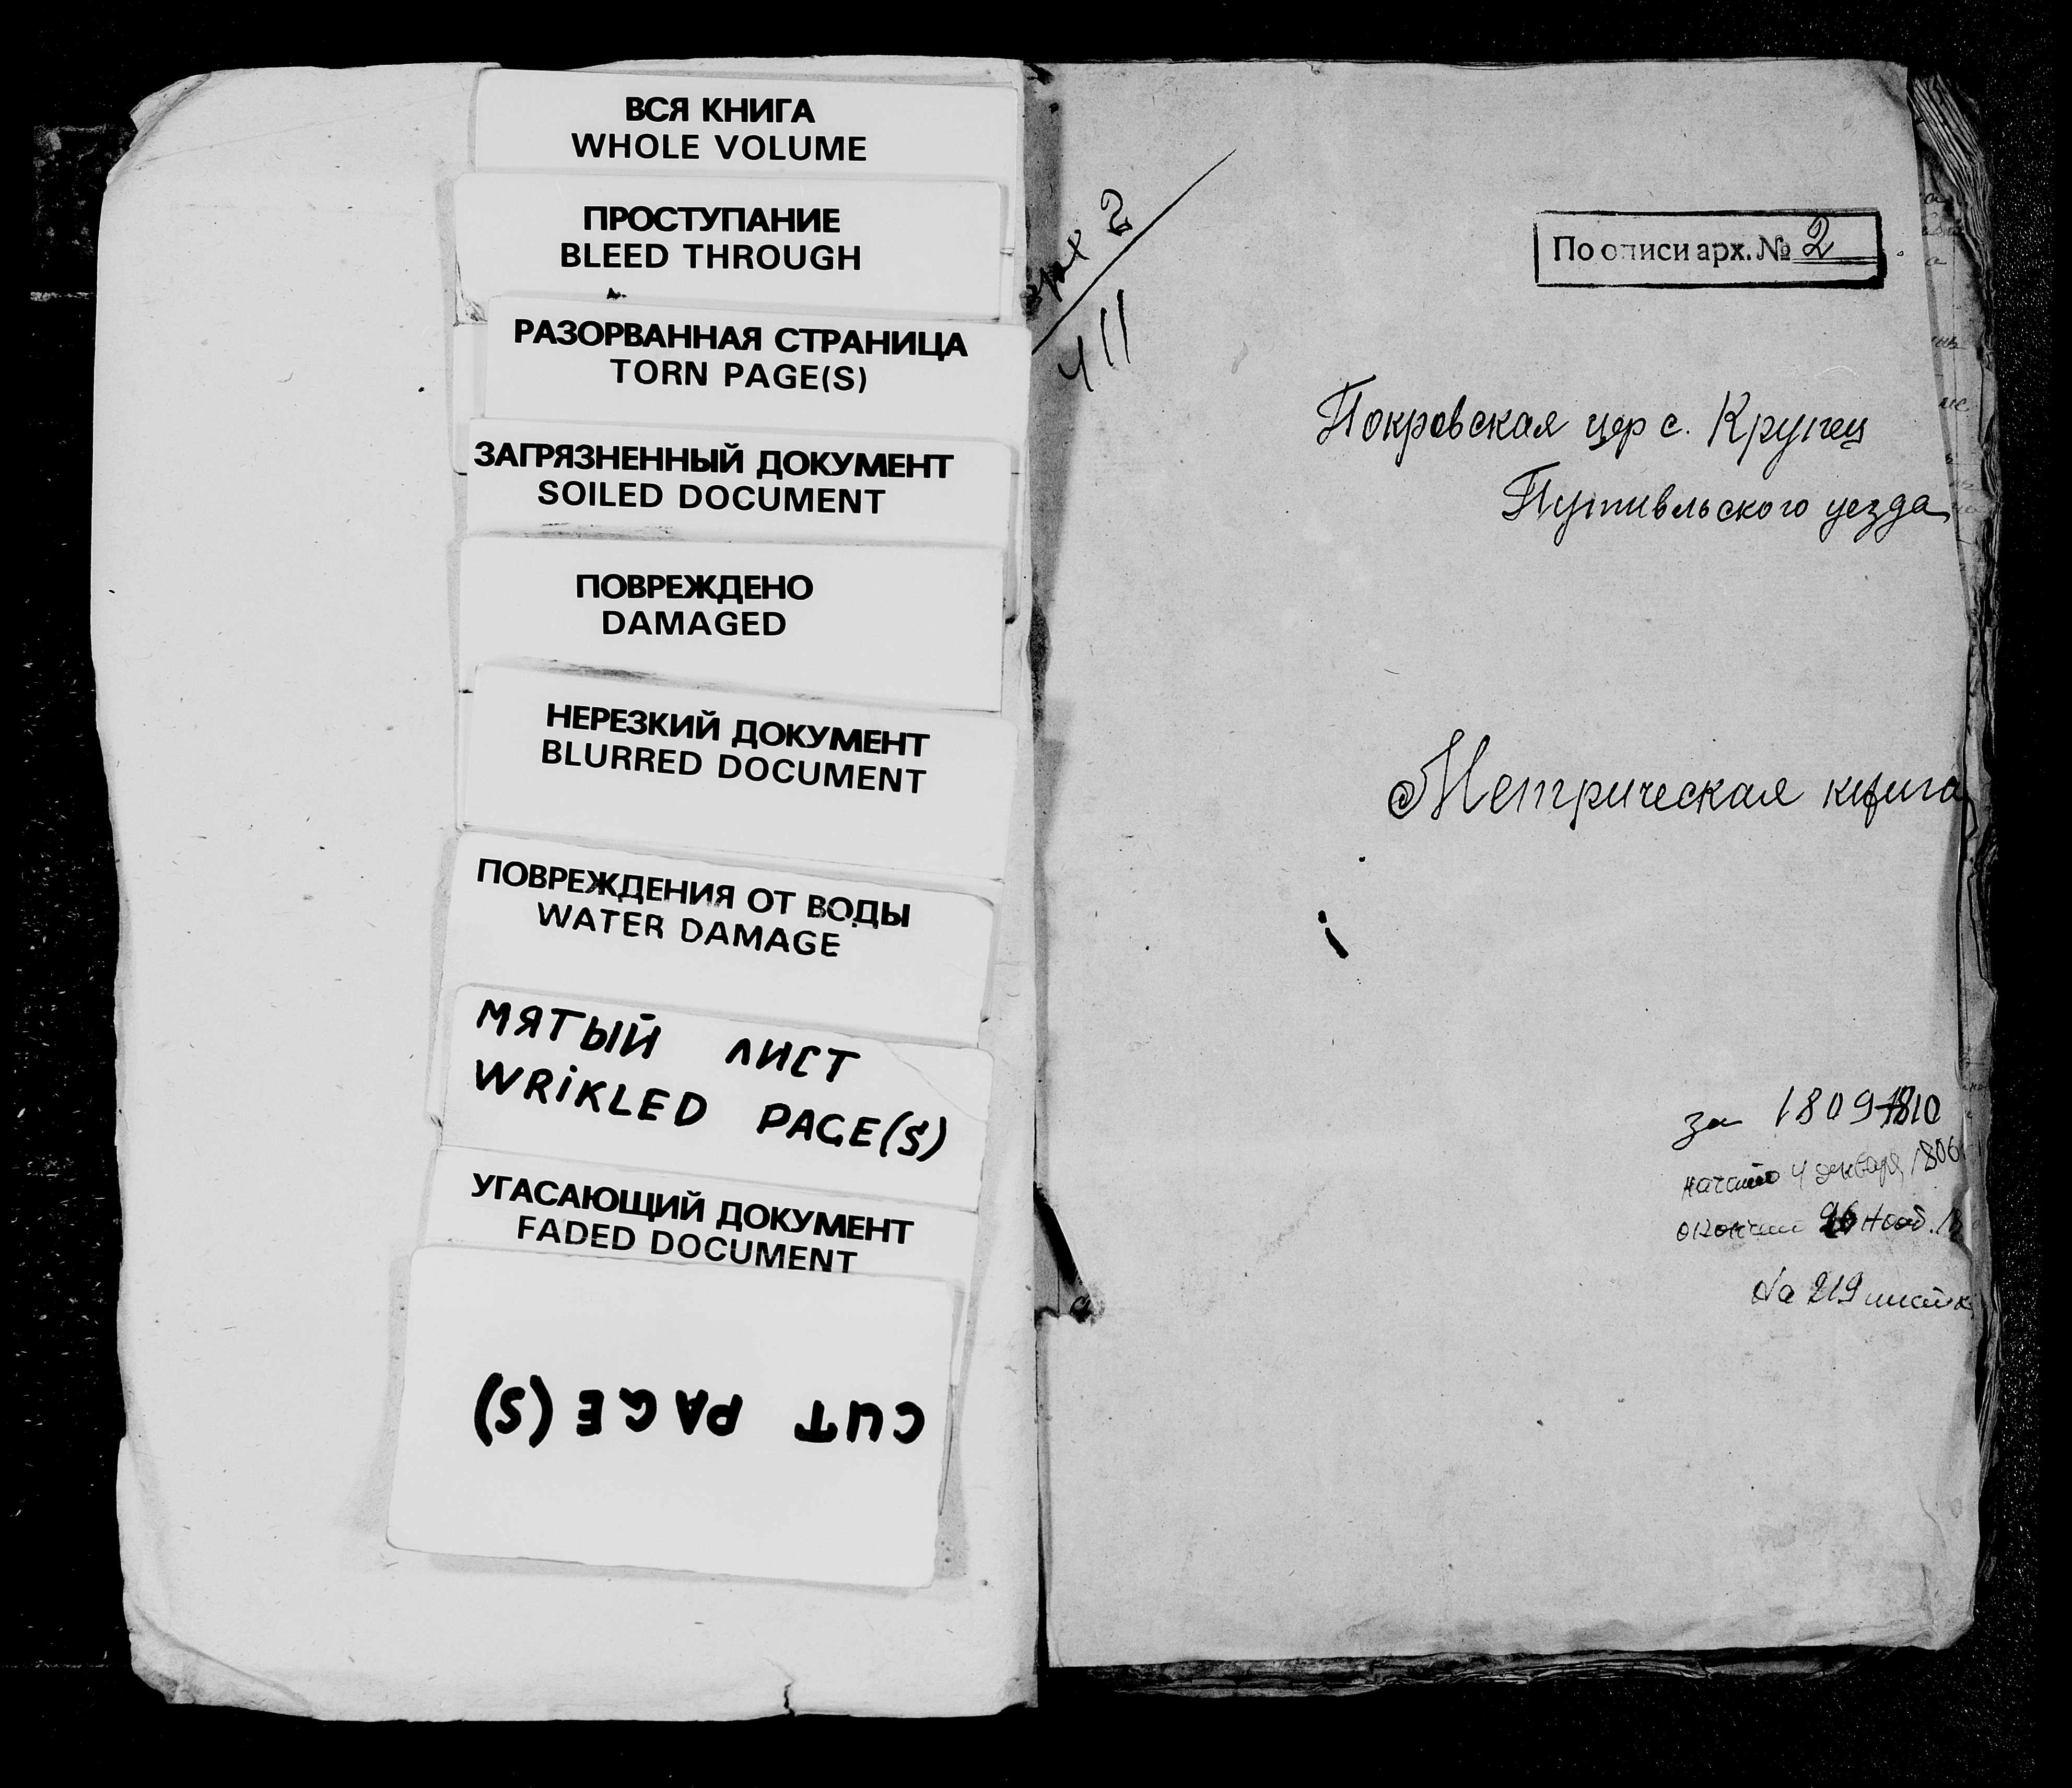 ВСЯ КНИГА
WHOLE VOLUME
ПРОСТУПАНИЕ
BLEED THROUGH
РАЗОРВАННАЯ СТРАНИЦА
TORN PAGE(S)
ЗАГРЯЗНЕННЫЙ ДОКУМЕНТ
SOILED DOCUMENT
ПОВРЕЖДЕНО
DAMAGED
НЕРЕЗКИЙ ДОКУМЕНТ
BLURRED DOCUMENT
ПОВРЕЖДЕНИЯ ОТ ВОДЫ
WATER DAMAGE
МЯТЫЙ ЛИСТ
WRIKLED PAGE(S)
УГАСАЮЩИЙ ДОКУМЕНТ
FADED DOCUMENT
CUT PAGE(S)
арх 2
411
По описи арх. № 2
Покровская цер с. Крупец
Путивльского уезда
Метрическая книга
за 1809-1810
начато 4 января 1806
окончен 26 нояб.
На 219 листах